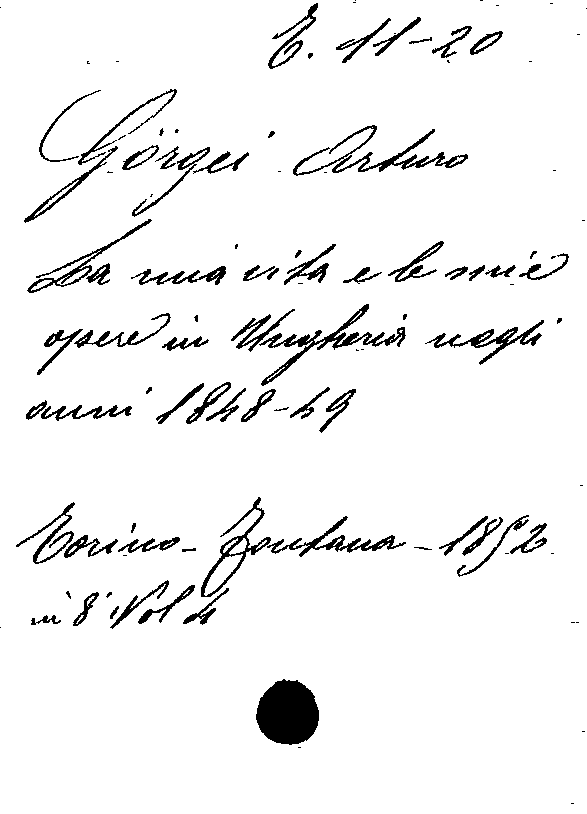 E. 11-20
Görgei Arturo
La mia vita e le mie
opere in Ungheria negli
anni 1848-49
Torino - Fontana - 1852
in 8° Vol 4